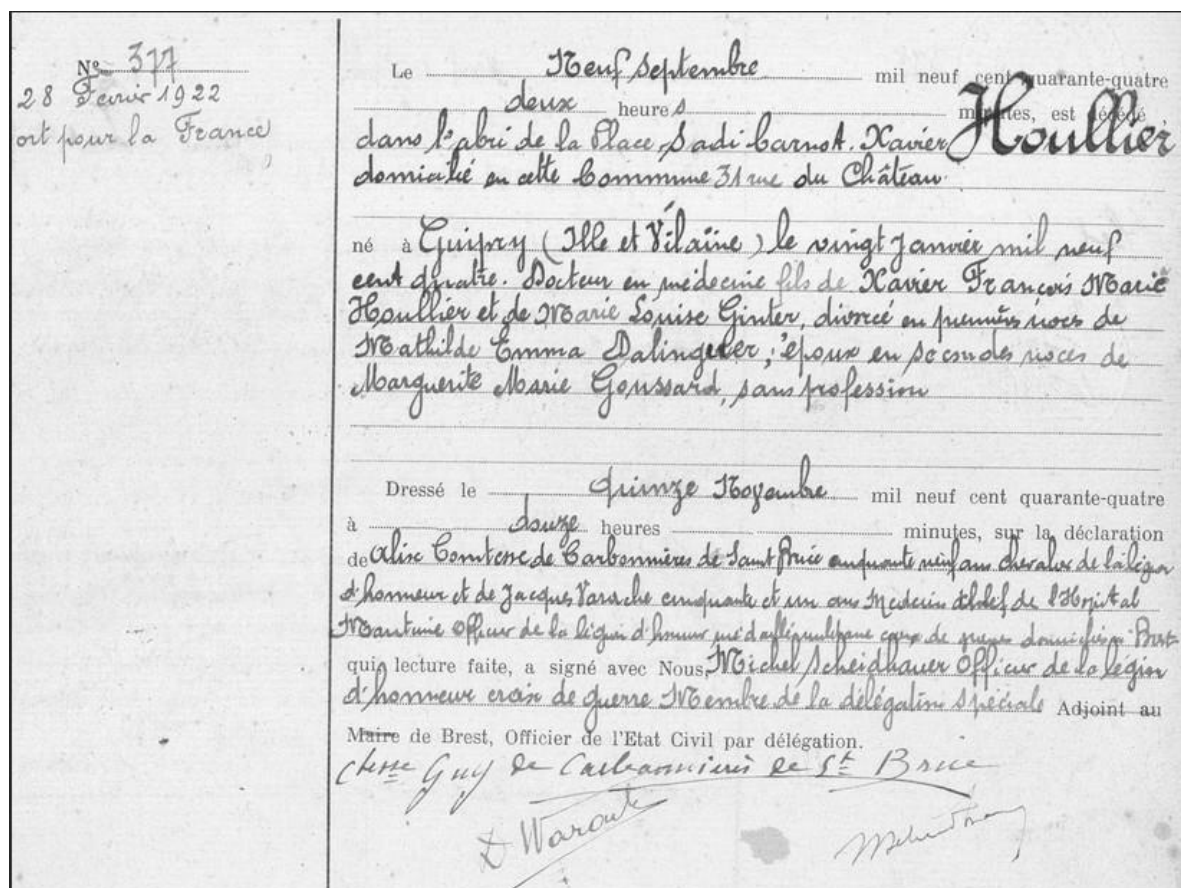 No 377
28 Fevrier 1922
ort pour la France
Le Neuf Septembre mil neuf cent quarante-quatre
deux heures minutes, est décédé
dans l'abri de la Place Sadi Carnot. Xavier Houllier
domicilié en cette Commune 31 rue du Château
né à Guipry (Ille et Vilaine) le vingt Janvier mil neuf
cent quatre. Docteur en médecine fils de Xavier François Marie
Houllier et de Marie Louise Ginter, divorcé en premières noces de
Mathilde Emma Dalinger, époux en secondes noces de
Marguerite Marie Goussard, sans profession
Dressé le Quinze Novembre mil neuf cent quarante-quatre
à douze heures minutes, sur la déclaration
de Alix Comtesse de Carbonnières de Saint Brice cinquante neuf ans chevalier de la légion
d'honneur et de Jacques cinquante et un ans Médecin chef de l'Hopital
Maritime Officier de la légion d'honneur croix de guerre domiciliés à Brest
qui, lecture faite, a signé avec Nous, Michel Scheidhauer Officier de la légion
d'honneur croix de guerre Membre de la délégation spéciale Adjoint au
Maire de Brest, Officier de l'Etat Civil par délégation.
Ctesse Guy de Carbonnières de St Brice